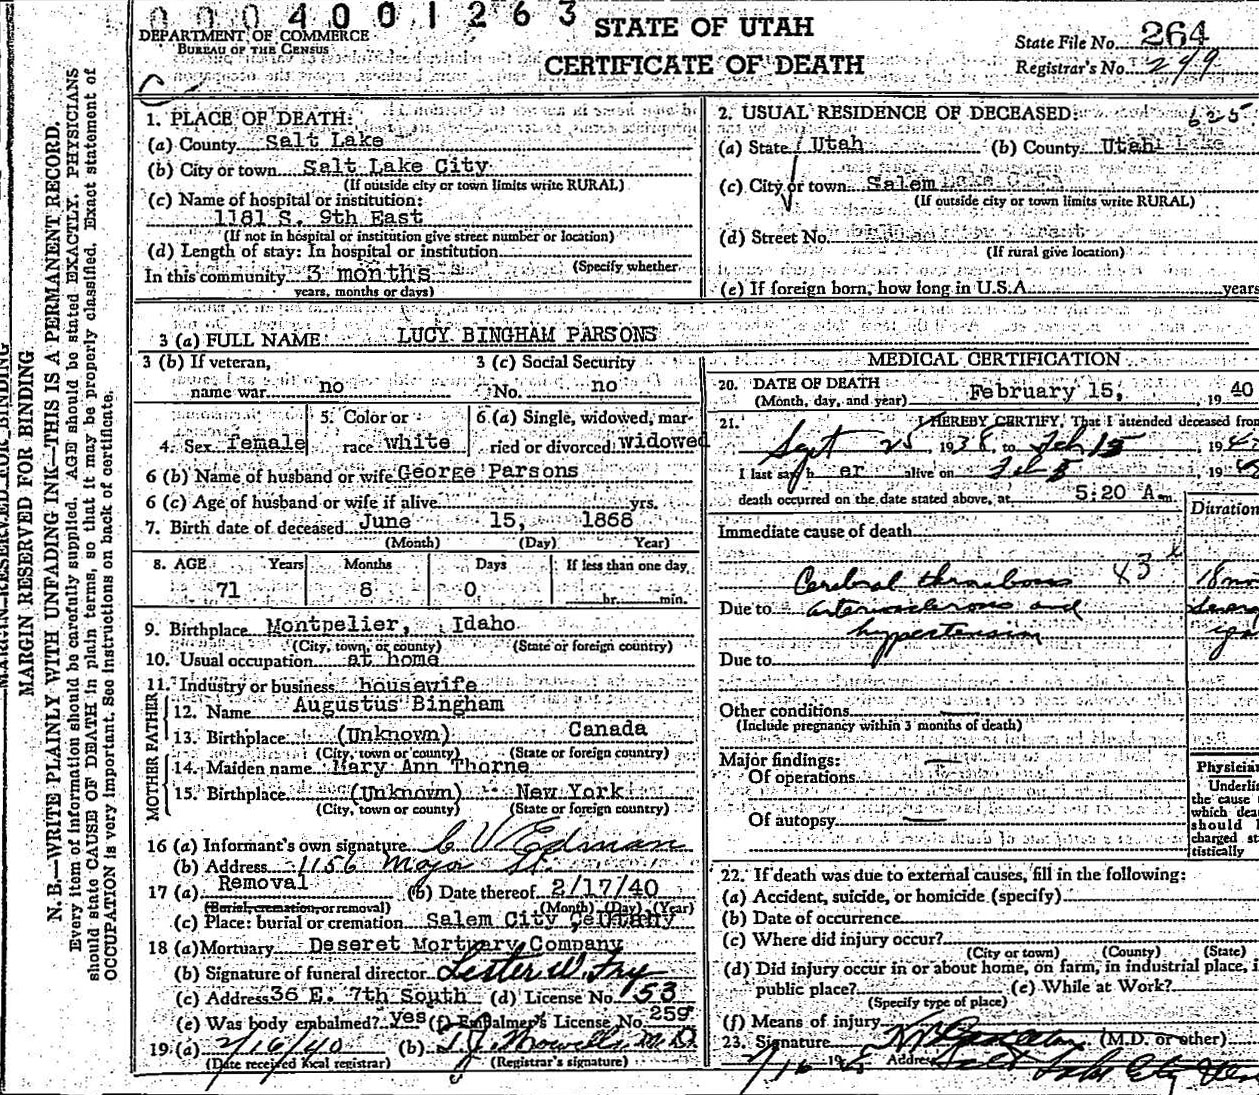 0004001263
DEPARTMENT OF COMMERCE
BUREAU OF THE CENSUS
STATE OF UTAH
CERTIFICATE OF DEATH
State File No. 264
Registrar's No. 299
1. PLACE OF DEATH:
(a) County Salt Lake
(b) City or town Salt Lake City
(If outside city or town limits write RURAL)
(c) Name of hospital or institution:
1181 S. 9th East
(If not in hospital or institution give street number or location)
(d) Length of stay: In hospital or institution
(Specify whether
In this community 3 months
years, months or days)
2. USUAL RESIDENCE OF DECEASED: 625
(a) State Utah (b) County Utah
(c) City or town Salem
(If outside city or town limits write RURAL)
(d) Street No.
(If rural give location)
(e) If foreign born, how long in U.S.A. years
3 (a) FULL NAME: LUCY BINGHAM PARSONS
3 (b) If veteran,
name war no
3 (c) Social Security
No. no
4. Sex female
5. Color or
race white
6 (a) Single, widowed, mar-
ried or divorced widowed
6 (b) Name of husband or wife George Parsons
6 (c) Age of husband or wife if alive yrs.
7. Birth date of deceased June 15, 1868
(Month) (Day) Year)
8. AGE Years Months Days If less than one day
71 8 0 hr. min.
9. Birthplace Montpelier, Idaho
(City, town, or county) (State or foreign country)
10. Usual occupation at home
11. Industry or business housewife
FATHER
12. Name Augustus Bingham
13. Birthplace (Unknown) Canada
(City, town or county) (State or foreign country)
MOTHER
14. Maiden name Mary Ann Thorne
15. Birthplace (Unknown) New York
(City, town or county) (State or foreign country)
16 (a) Informant's own signature C V Edman
(b) Address 1156 Major St.
17 (a) Removal (b) Date thereof 2/17/40
(Burial, cremation, or removal) (Month) (Day) (Year)
(c) Place: burial or cremation Salem City
18 (a) Mortuary Deseret Mortuary Company
(b) Signature of funeral director Lester W. Fry
(c) Address 36 E. 7th South (d) License No. 153
(e) Was body embalmed? yes (f) Embalmer's License No. 259
19. (a) 2/16/40 (b) M.D.
(Date received local registrar) (Registrar's signature)
MEDICAL CERTIFICATION
20. DATE OF DEATH
(Month, day, and year) February 15, 19 40
21. I HEREBY CERTIFY, That I attended deceased from
Sept 25 1938, to Feb 15, 194
I last saw h er alive on Feb 194
death occurred on the date stated above, at 5:20 A.m.
Duration
Immediate cause of death
Cerebral thrombosis 83
18 mo
Due to arteriosclerosis and
hypertension
Due to
Other conditions
(Include pregnancy within 3 months of death)
Major findings:
Of operations
Of autopsy
Physician
Underli
the cause
which dea
should
charged st
tistically
22. If death was due to external causes, fill in the following:
(a) Accident, suicide, or homicide (specify)
(b) Date of occurrence
(c) Where did injury occur?
(City or town) (County) (State)
(d) Did injury occur in or about home, on farm, in industrial place, i
public place? (e) While at Work?
(Specify type of place)
(f) Means of injury
23. Signature (M.D. or other)
2/16 19 Address Salt Lake City
MARGIN RESERVED FOR BINDING
MARGIN RESERVED FOR BINDING
N. B.—WRITE PLAINLY WITH UNFADING INK—THIS IS A PERMANENT RECORD.
Every item of information should be carefully supplied. AGE should be stated EXACTLY. PHYSICIANS
should state CAUSE OF DEATH in plain terms, so that it may be properly classified. Exact statement of
OCCUPATION is very important. See instructions on back of certificate.